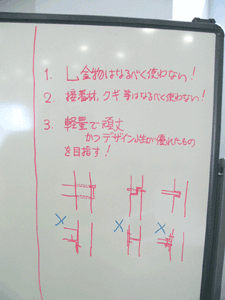 1. L金物はなるべく使わない!
2. 接着材、クギ等はなるべく使わない!
3. 軽量で頑丈
かつデザイン性が優れたもの
を目指す!